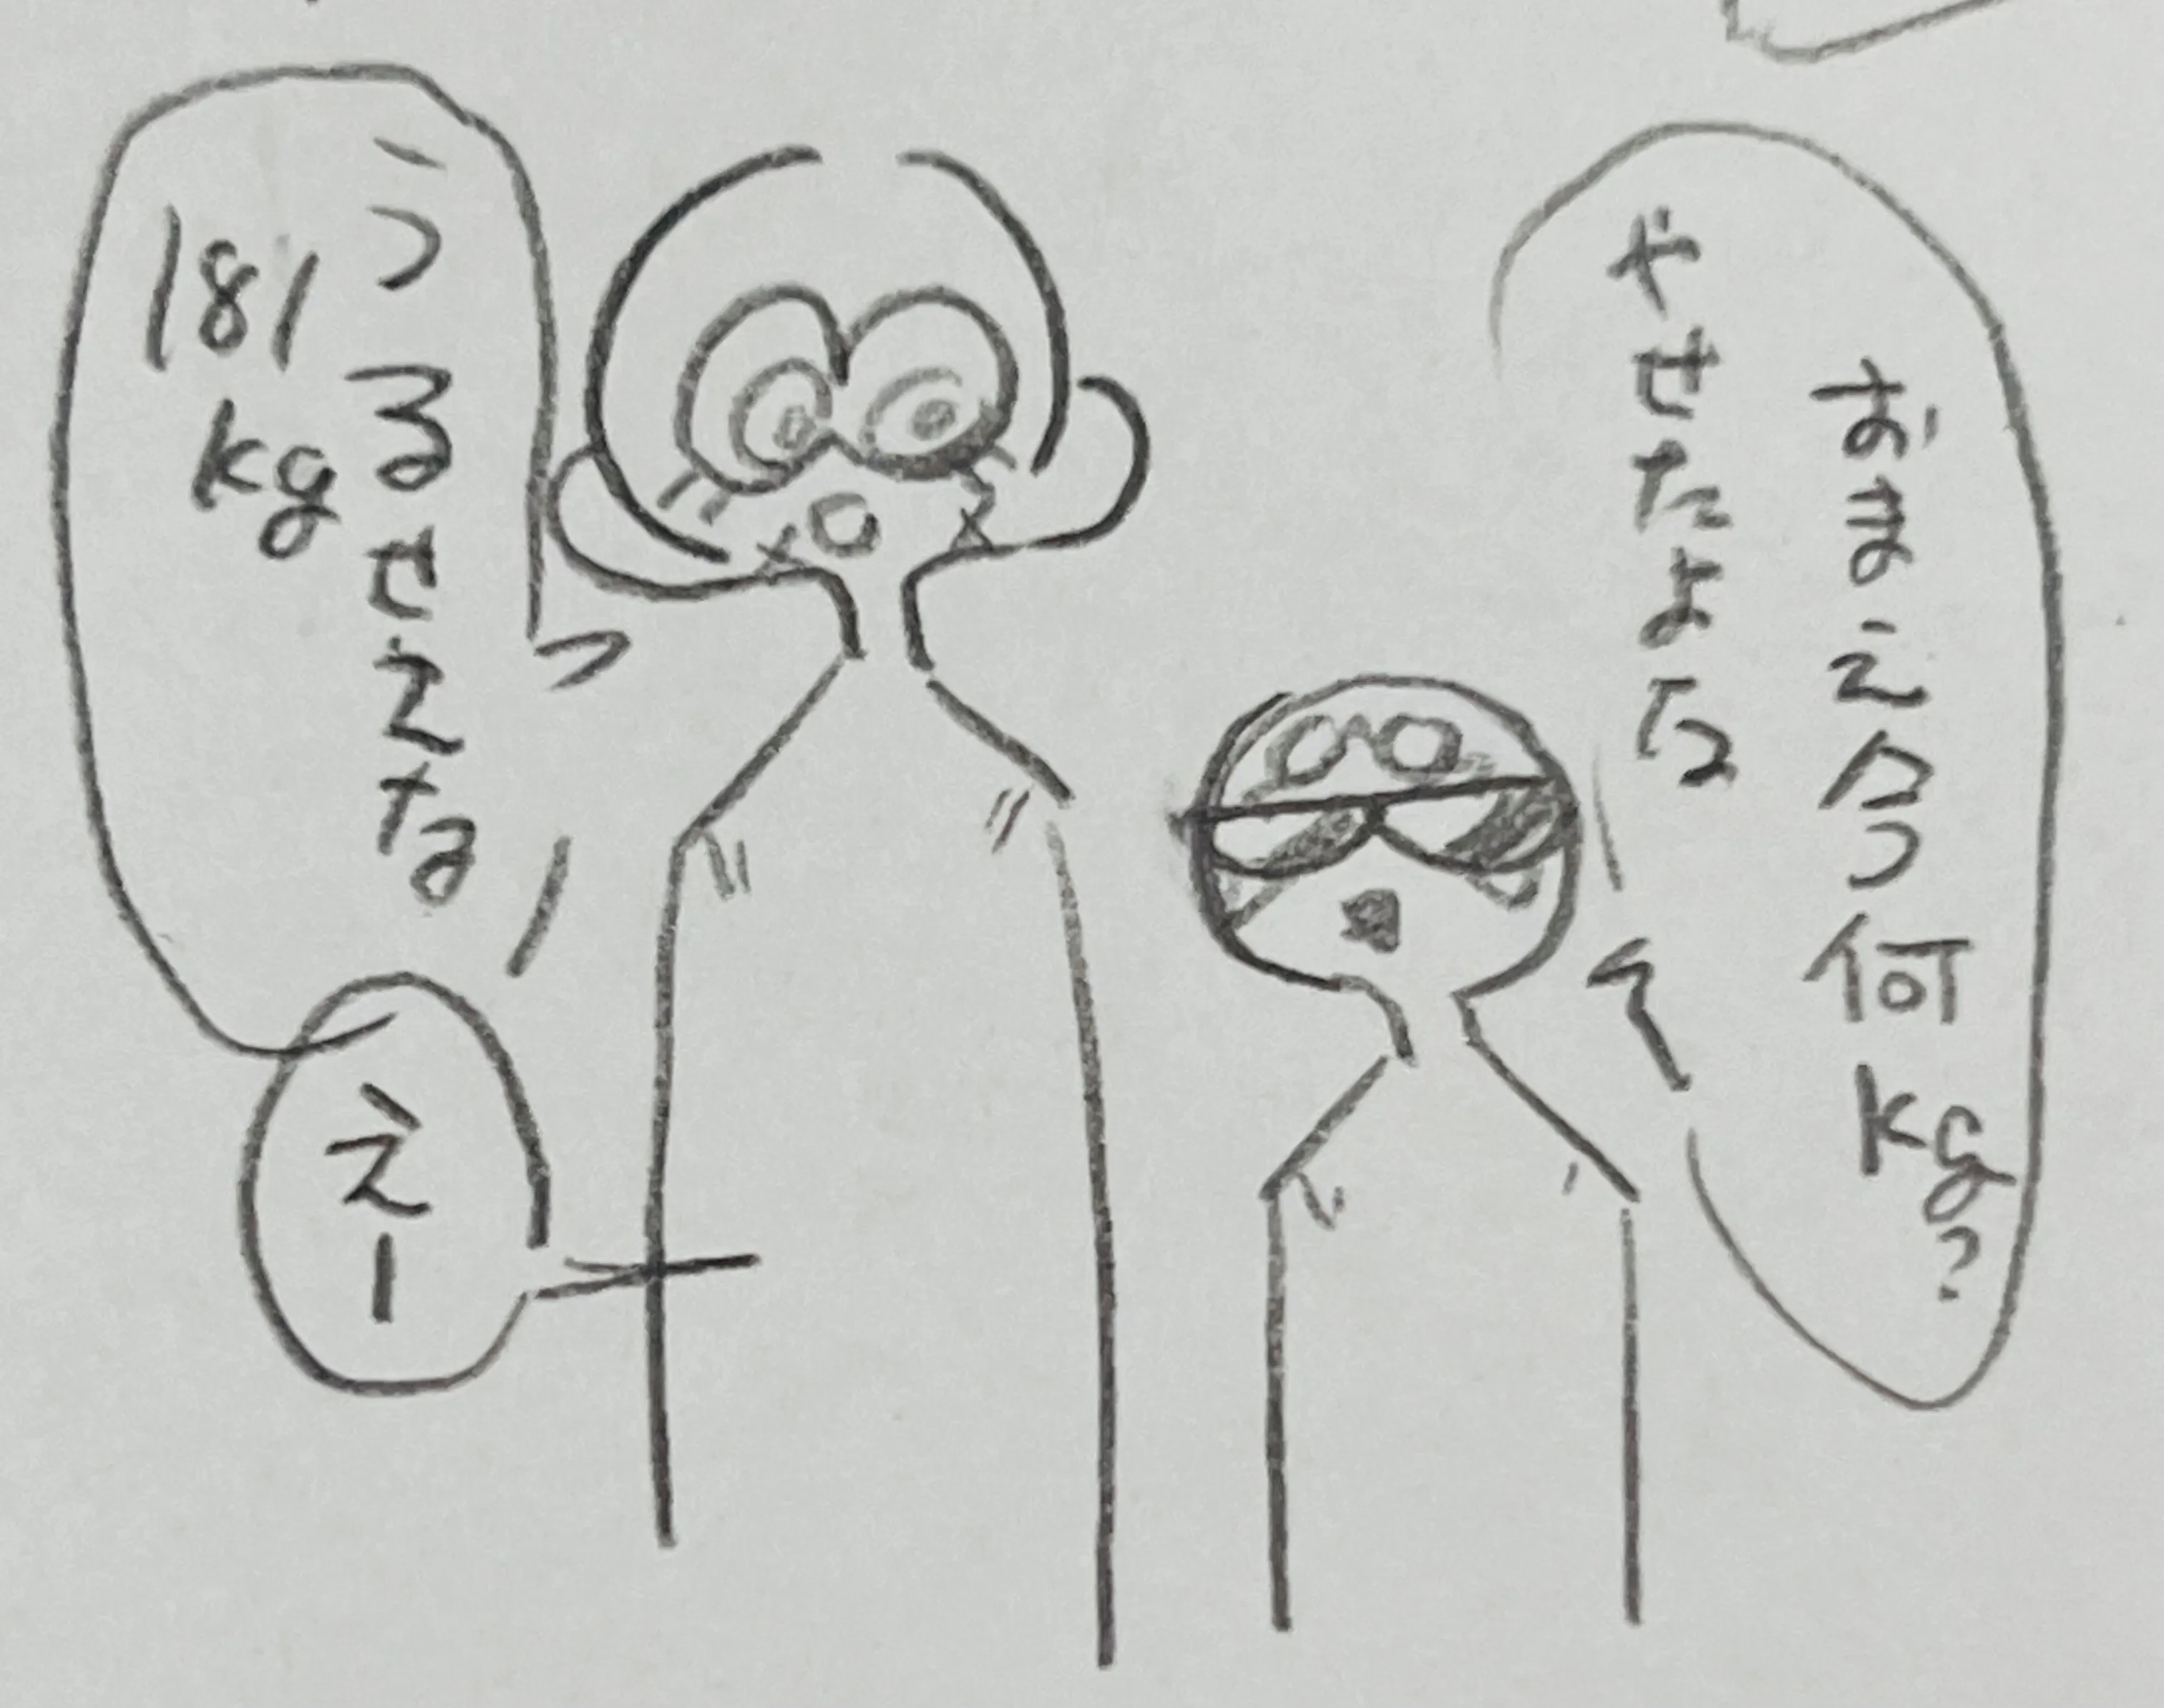 おまえ今何kg?
やせたよな
うるせえな
181kg
えー